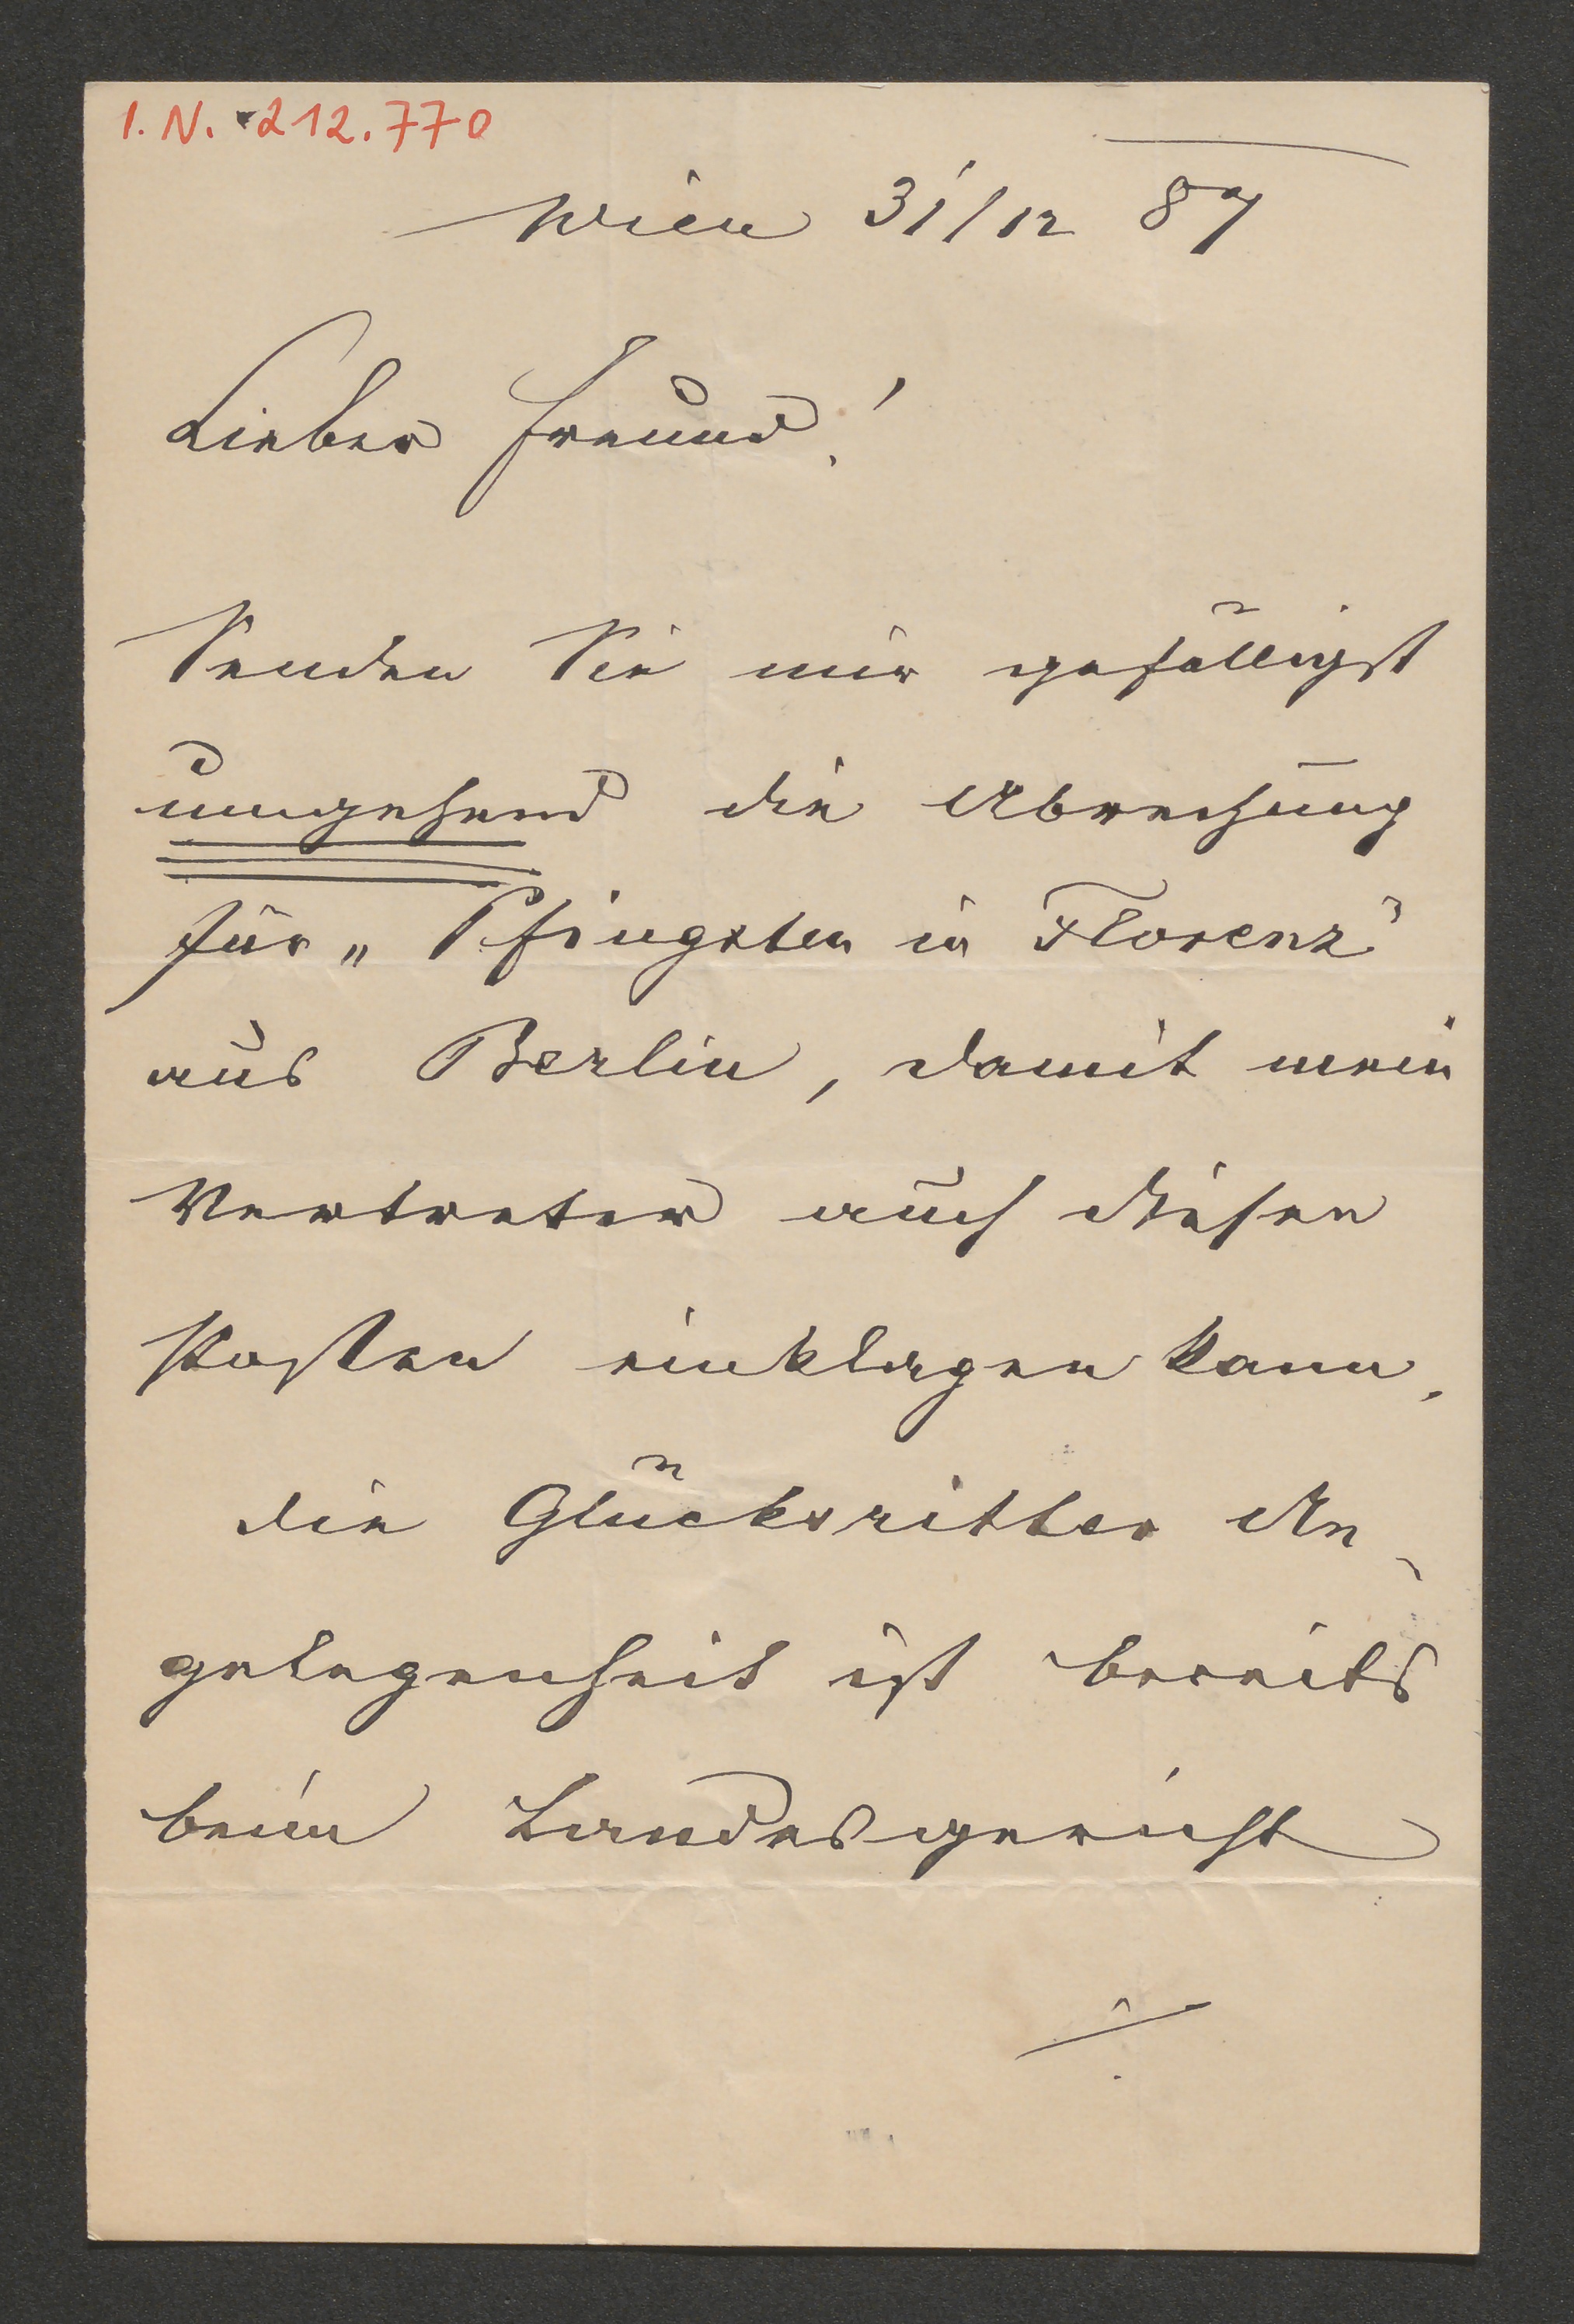 I.N. 212.770
Wien 31/12 87
Lieber Freund!
Senden Sie mir gefälligst
umgehend die Abrechnung
für „Pfingsten in Florenz"
aus Berlin, damit mein
Vertreter auch diesen
Posten einklagen kann.
Die Glücksritter An-
gelegenheit ist bereits
beim Landesgericht
./.